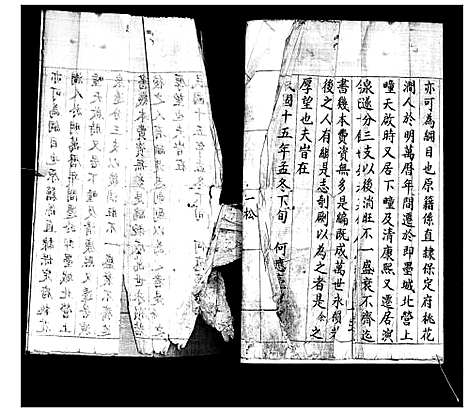 亦可為綱目也原籍係直隸保定府桃花
澗人於明萬曆年間遷於即墨城北營上
疃天啟時又居下疃及清康熙又遷居演
泉遂分三支以後消旺不一盛衰不齊迄
書幾本費資無多是編既成萬世永
後之人有繼是志刻以為之者是余之
厚望也夫旹在
民國十五年孟冬下旬 何應
一松